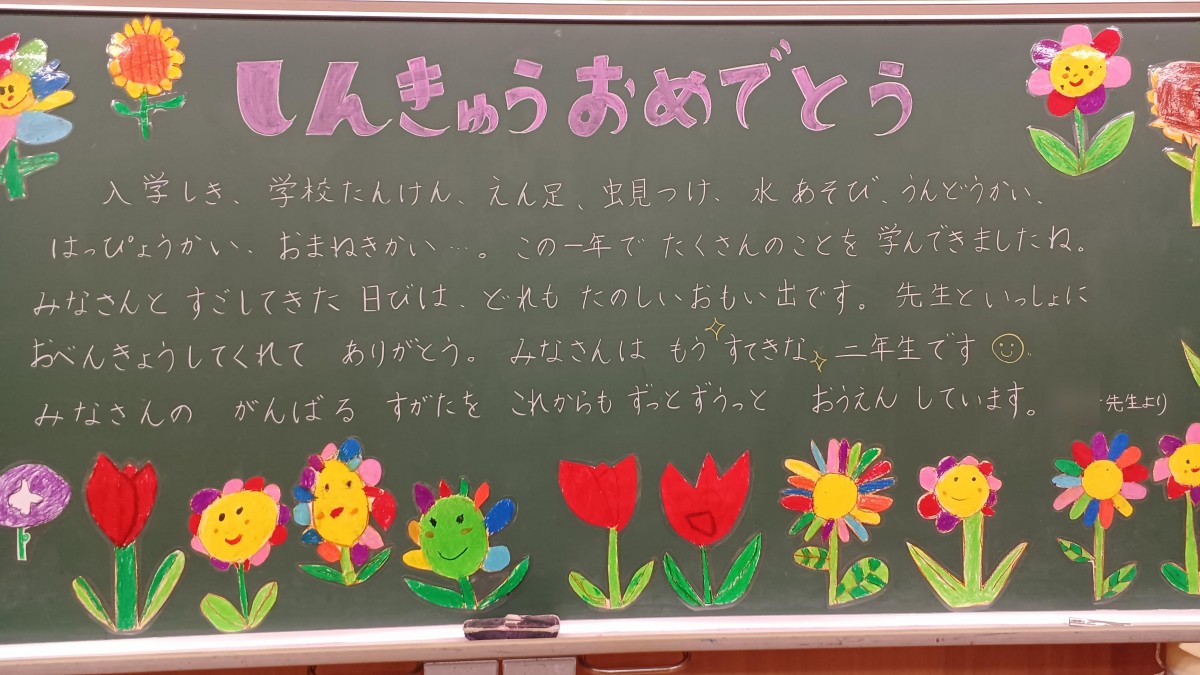 しんきゅうおめでとう
入学しき、学校たんけん、えん足、虫見つけ、水あそび、うんどうかい、
はっぴょうかい、おまねきかい…。この一年でたくさんのことを学んできましたね。
みなさんとすごしてきた日びは、どれもたのしいおもい出です。先生といっしょに
おべんきょうしてくれてありがとう。みなさんはもうすてきな二年生です
みなさんのがんばるすがたをこれからもずっとずうっとおうえんしています。 先生より